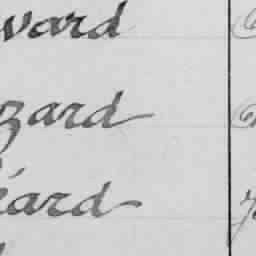 ward
zard
éard